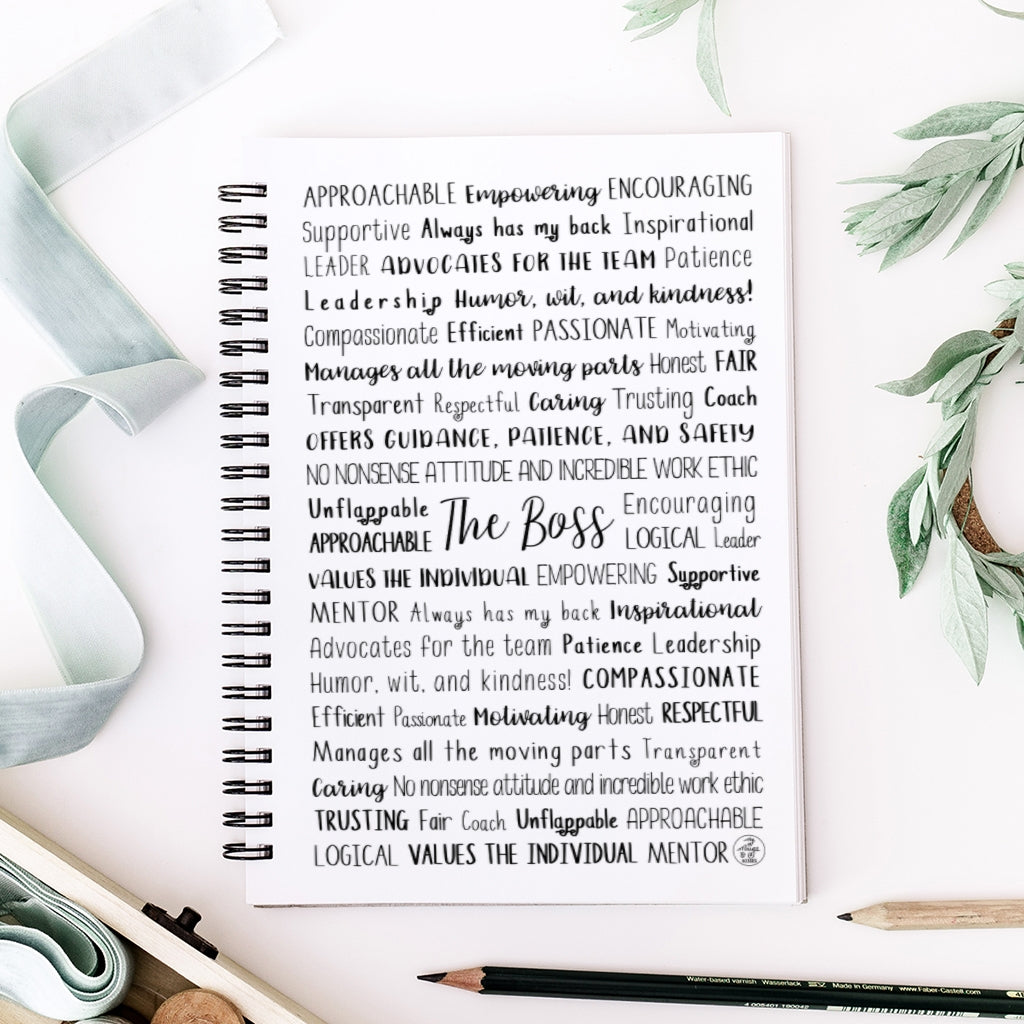 APPROACHABLE Empowering ENCOURAGING
Supportive Always has my back Inspirational
LEADER ADVOCATES FOR THE TEAM Patience
Leadership Humor, wit, and kindness!
Compassionate Efficient PASSIONATE Motivating
Manages all the moving parts Honest FAIR
Transparent Respectful Caring Trusting Coach
OFFERS GUIDANCE, PATIENCE, AND SAFETY
NO NONSENSE ATTITUDE AND INCREDIBLE WORK ETHIC
Unflappable
APPROACHABLE
The Boss
Encouraging
LOGICAL Leader
VALUES THE INDIVIDUAL EMPOWERING Supportive
MENTOR Always has my back Inspirational
Advocates for the team Patience Leadership
Humor, wit, and kindness! COMPASSIONATE
Efficient Passionate Motivating Honest RESPECTFUL
Manages all the moving parts Transparent
Caring No nonsense attitude and incredible work ethic
TRUSTING Fair Coach Unflappable APPROACHABLE
LOGICAL VALUES THE INDIVIDUAL MENTOR
Water-based varnish Wasserlack Made in Germany www.Faber-Castell.com